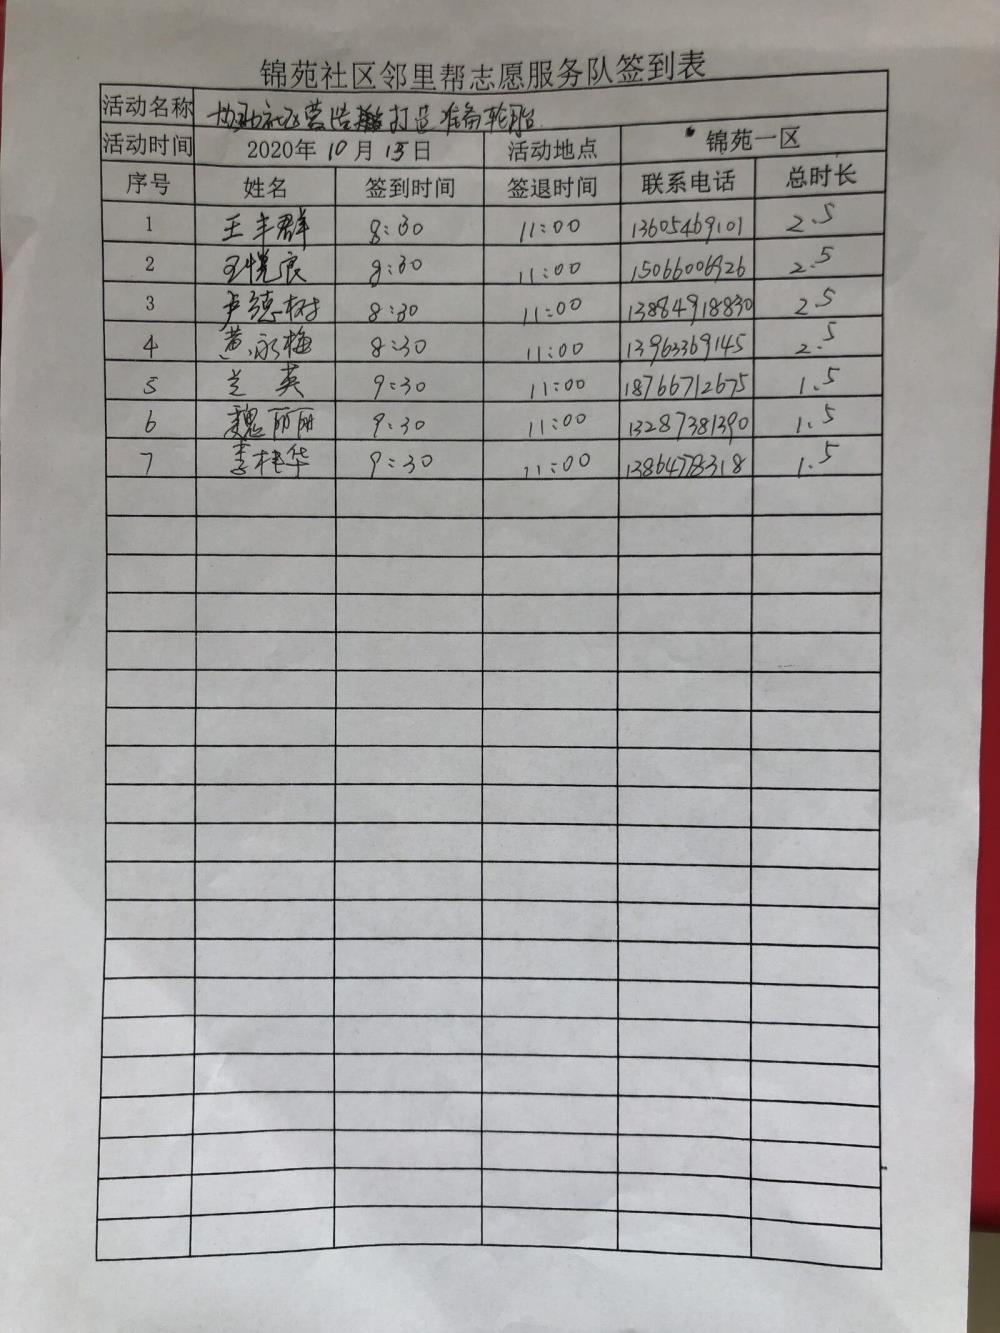 锦苑社区邻里帮志愿服务队签到表
活动名称 协助社区 打造 准备轮胎
活动时间 2020年10月13日 活动地点 锦苑一区
序号 姓名 签到时间 签退时间 联系电话 总时长
1 王丰群 8:30 11:00 13605469101 2.5
2 王悦良 8:30 11:00 15066006926 2.5
3 卢德树 8:30 11:00 13884918830 2.5
4 黄永梅 8:30 11:00 13963369145 2.5
5 兰英 9:30 11:00 18766712675 1.5
6 魏丽丽 9:30 11:00 13287381390 1.5
7 李桂华 9:30 11:00 1.5